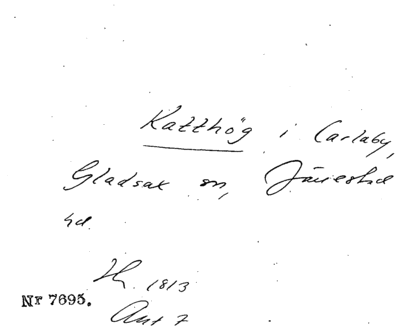 Katthög i Carlaby,
Gladsax sn, Järrestad
hd.
1813
Nr 7695.
Ant 7